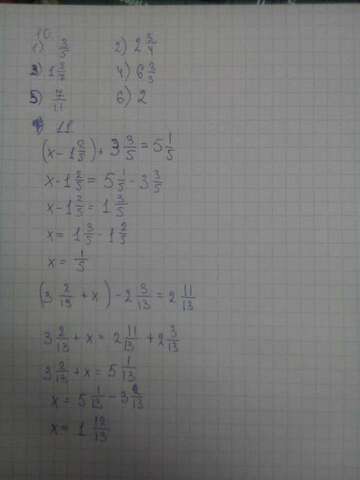 10.
1) 3/5 2) 2 3/4
3) 1 3/7 4) 6 3/5
5) 7/11 6) 2
11
(x - 1 2/5) + 3 3/5 = 5 1/5
x - 1 2/5 = 5 1/5 - 3 3/5
x - 1 2/5 = 1 3/5
x = 1 3/5 - 1 2/5
x = 1/5
(3 2/13 + x) - 2 3/13 = 2 11/13
3 2/13 + x = 2 11/13 + 2 3/13
3 2/13 + x = 5 1/13
x = 5 1/13 - 3 2/13
x = 1 12/13